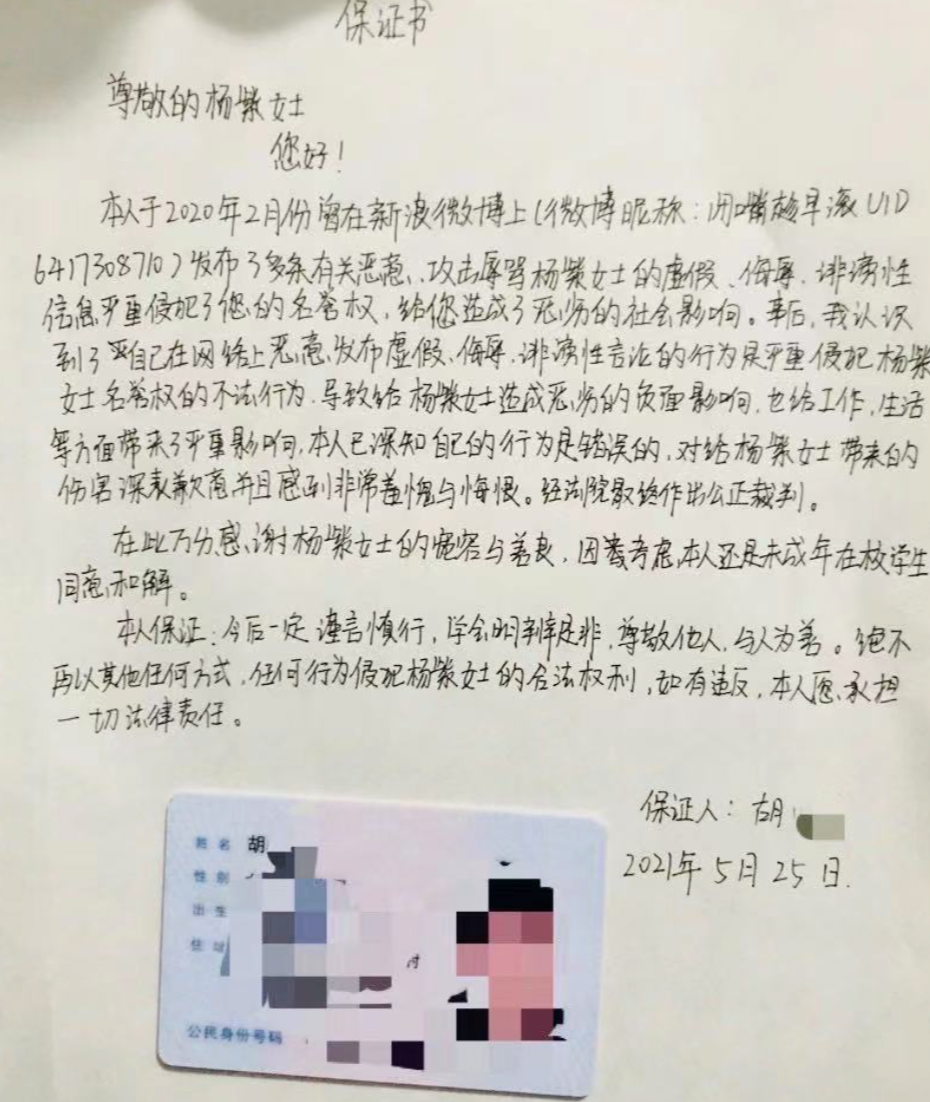 保证书
尊敬的杨紫女士
您好！
本人于2020年2月份曾在新浪微博上（微博昵称：闭嘴趁早滚 UID
6417308710）发布了多条有关恶意、攻击辱骂杨紫女士的虚假、侮辱、诽谤性
信息严重侵犯了您的名誉权，给您造成了恶劣的社会影响。事后，我认识
到了自己在网络上恶意发布虚假、侮辱、诽谤性言论的行为是严重侵犯杨紫
女士名誉权的不法行为，导致给杨紫女士造成恶劣的负面影响，也给工作，生活
等方面带来了严重影响，本人已深知自己的行为是错误的，对给杨紫女士带来的
伤害深表歉意并且感到非常羞愧与悔恨。经法院最终作出公正裁判。
在此万分感谢杨紫女士的宽容与善良，因考虑本人还是未成年在校学生
同意和解。
本人保证：今后一定谨言慎行，学会明辨是非，尊敬他人，与人为善。绝不
再以其他任何方式，任何行为侵犯杨紫女士的合法权利，如有违反，本人愿承担
一切法律责任。
保证人：胡
2021年5月25日.
姓名 胡
性别
出生
住址
村
公民身份号码